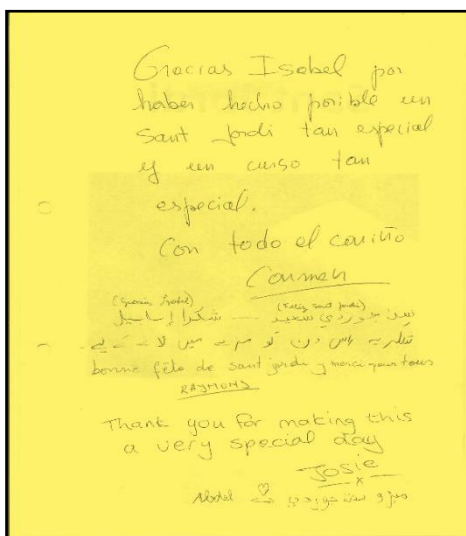 Gracias Isabel por
haber hecho posible un
Sant Jordi tan especial
y un curso tan
especial.
Con todo el cariño
Carmen
(Gracias Isabel) (Feliz Sant Jordi)
سعيد — شكرا إسابيل
شکریہ اس دن کو میں لانے کے لیے
bonne fête de sant jordi y merci pour tous
RAYMOND
Thank you for making this
a very special day
Josie
x
Abdel ♡